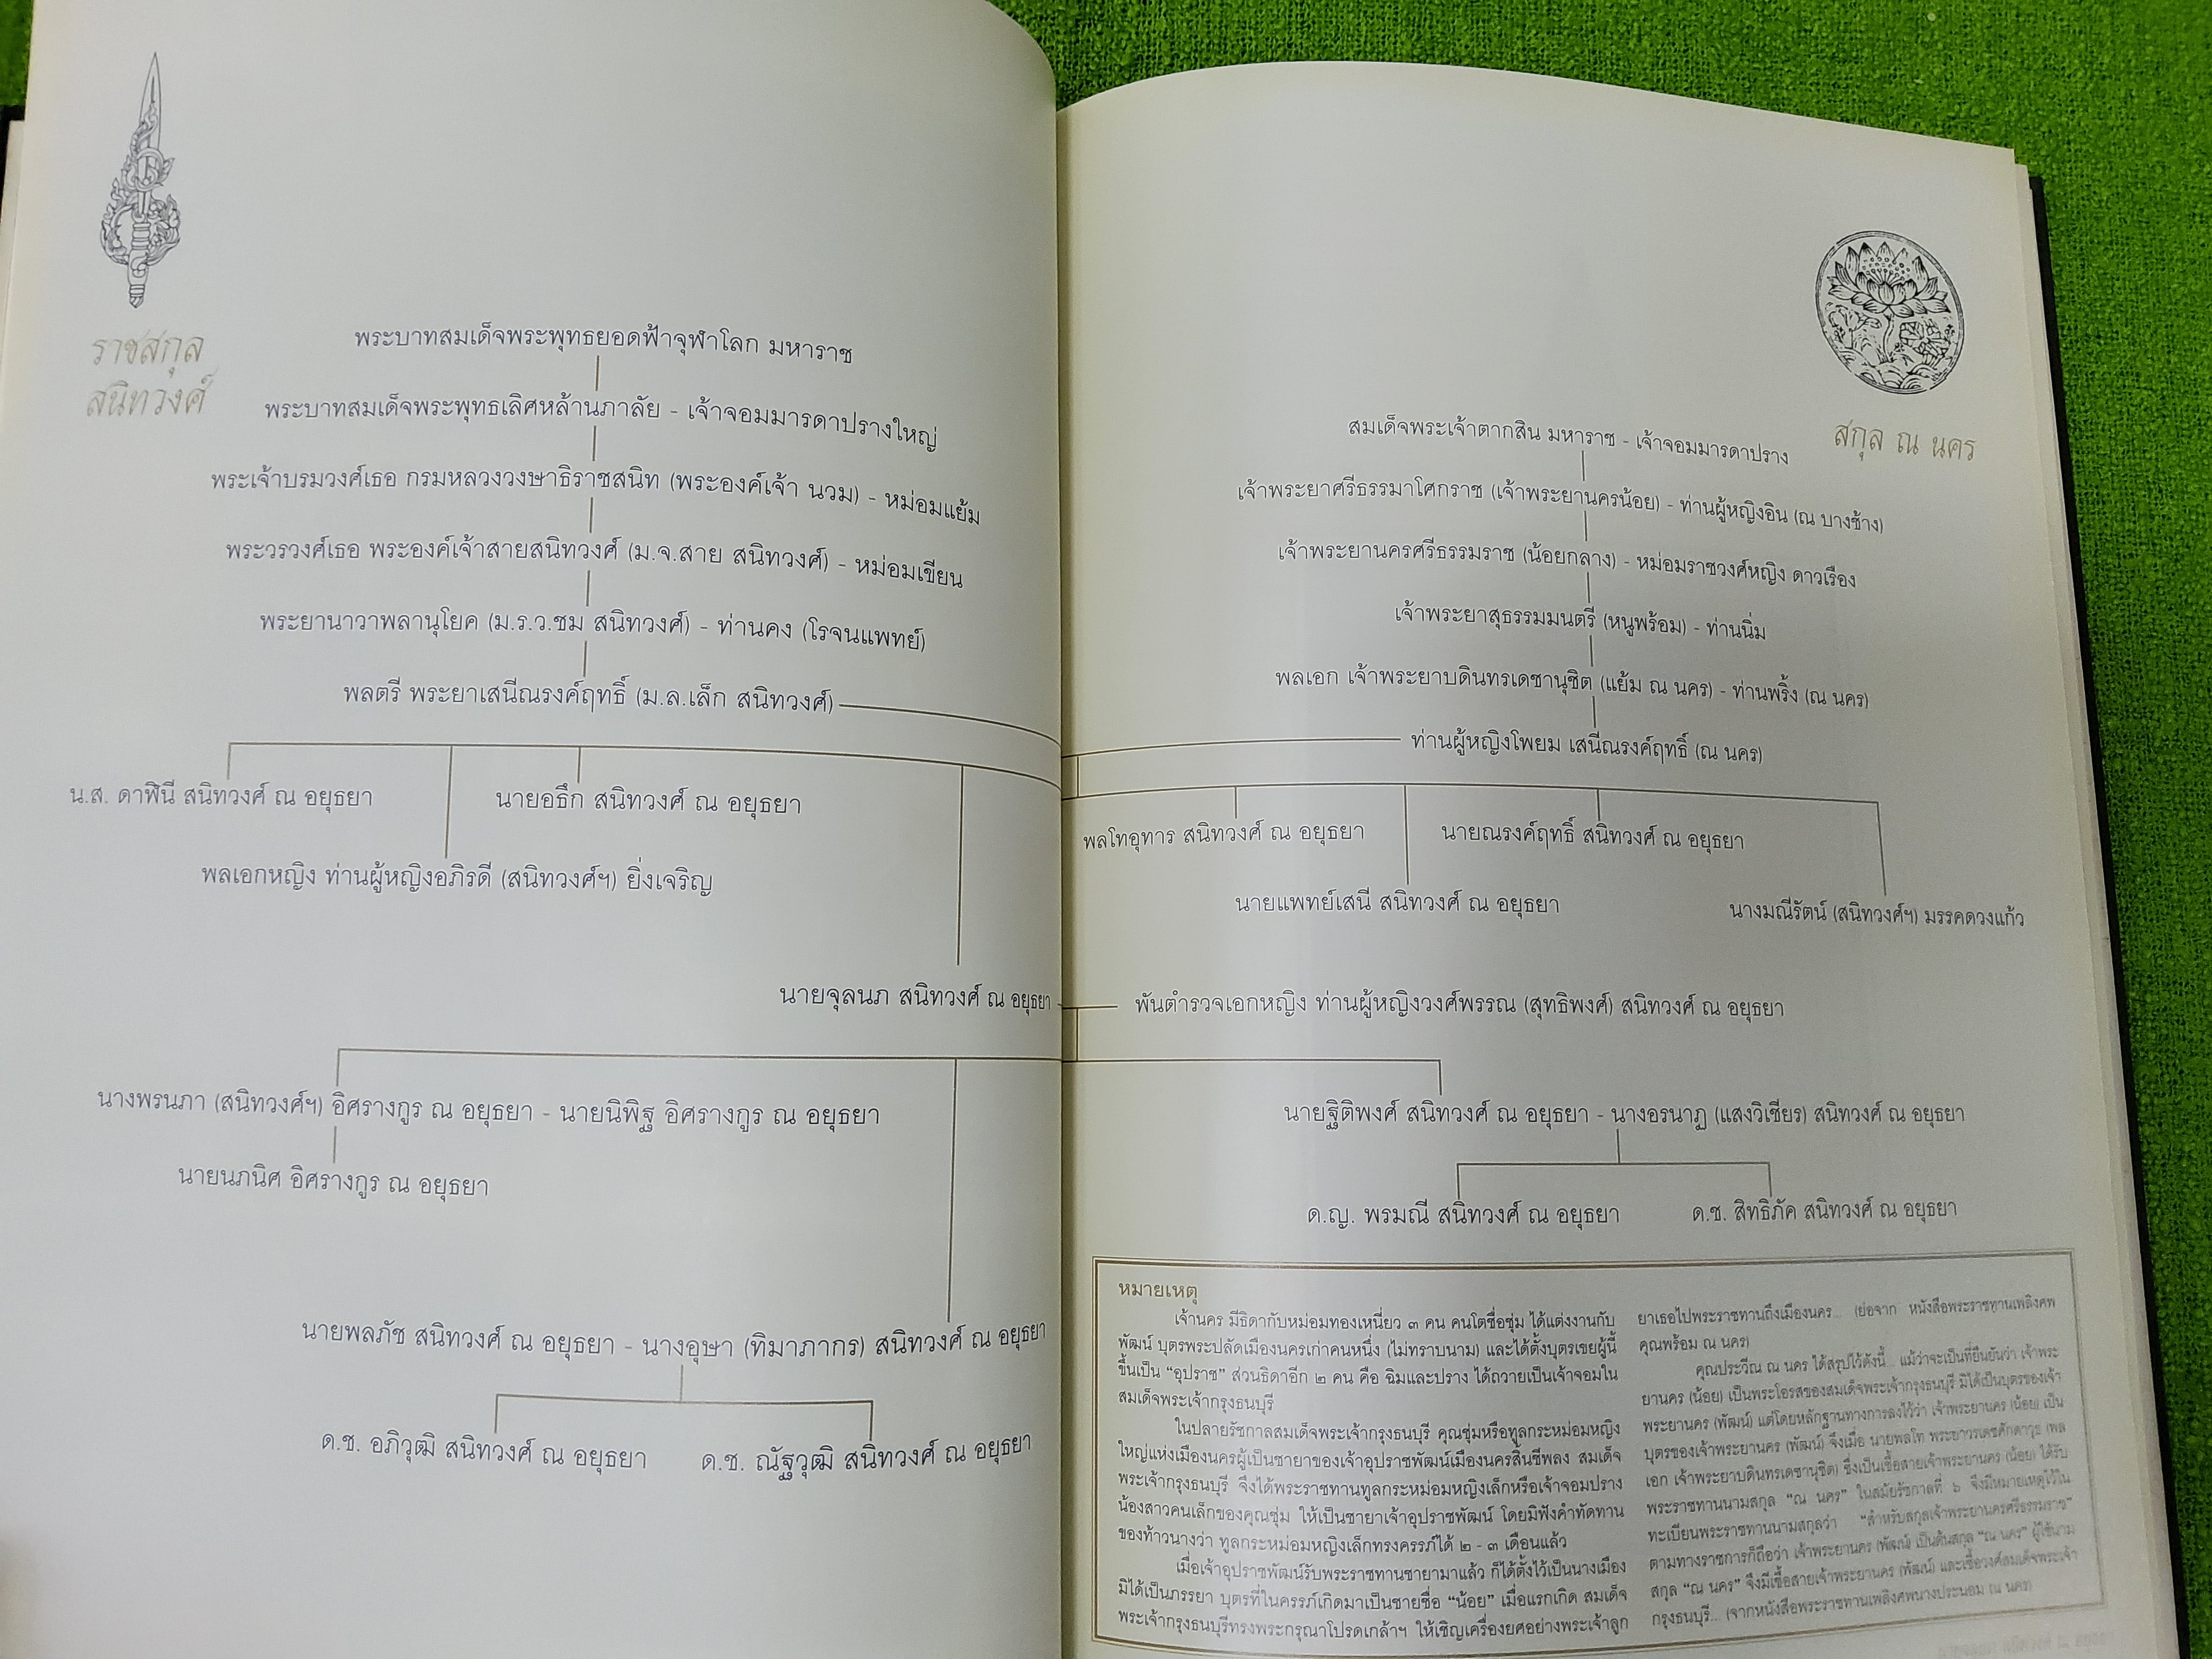 ราชสกุล
สนิทวงศ์
พระบาทสมเด็จพระพุทธยอดฟ้าจุฬาโลก มหาราช
พระบาทสมเด็จพระพุทธเลิศหล้านภาลัย - เจ้าจอมมารดาปรางใหญ่
พระเจ้าบรมวงศ์เธอ กรมหลวงวงษาธิราชสนิท (พระองค์เจ้า นวม) - หม่อมแย้ม
พระวรวงศ์เธอ พระองค์เจ้าสายสนิทวงศ์ (ม.จ.สาย สนิทวงศ์) - หม่อมเขียน
พระยานาวาพลานุโยค (ม.ร.ว.ชม สนิทวงศ์) - ท่านคง (โรจนแพทย์)
พลตรี พระยาเสนีณรงค์ฤทธิ์ (ม.ล.เล็ก สนิทวงศ์)
น.ส. ดาฬินี สนิทวงศ์ ณ อยุธยา
นายอธึก สนิทวงศ์ ณ อยุธยา
พลเอกหญิง ท่านผู้หญิงอภิรดี (สนิทวงศ์ฯ) ยิ่งเจริญ
นายจุลนภ สนิทวงศ์ ณ อยุธยา
นางพรนภา (สนิทวงศ์ฯ) อิศรางกูร ณ อยุธยา - นายนิพิฐ อิศรางกูร ณ อยุธยา
นายนภนิศ อิศรางกูร ณ อยุธยา
นายพลภัช สนิทวงศ์ ณ อยุธยา - นางอุษา (ทิมาภากร) สนิทวงศ์ ณ อยุธยา
ด.ช. อภิวุฒิ สนิทวงศ์ ณ อยุธยา
ด.ช. ณัฐวุฒิ สนิทวงศ์ ณ อยุธยา
สกุล ณ นคร
สมเด็จพระเจ้าตากสิน มหาราช - เจ้าจอมมารดาปราง
เจ้าพระยาศรีธรรมาโศกราช (เจ้าพระยานครน้อย) - ท่านผู้หญิงอิน (ณ บางช้าง)
เจ้าพระยานครศรีธรรมราช (น้อยกลาง) - หม่อมราชวงศ์หญิง ดาวเรือง
เจ้าพระยาสุธรรมมนตรี (หนูพร้อม) - ท่านนิ่ม
พลเอก เจ้าพระยาบดินทรเดชานุชิต (แย้ม ณ นคร) - ท่านพริ้ง (ณ นคร)
ท่านผู้หญิงโพยม เสนีณรงค์ฤทธิ์ (ณ นคร)
พลโทอุทาร สนิทวงศ์ ณ อยุธยา
นายณรงค์ฤทธิ์ สนิทวงศ์ ณ อยุธยา
นายแพทย์เสนี สนิทวงศ์ ณ อยุธยา
นางมณีรัตน์ (สนิทวงศ์ฯ) มรรคดวงแก้ว
พันตำรวจเอกหญิง ท่านผู้หญิงวงศ์พรรณ (สุทธิพงศ์) สนิทวงศ์ ณ อยุธยา
นายฐิติพงศ์ สนิทวงศ์ ณ อยุธยา - นางอรนาฏ (แสงวิเชียร) สนิทวงศ์ ณ อยุธยา
ด.ญ. พรมณี สนิทวงศ์ ณ อยุธยา
ด.ช. สิทธิภัค สนิทวงศ์ ณ อยุธยา
หมายเหตุ
เจ้านคร มีธิดากับหม่อมทองเหนี่ยว ๓ คน คนโตชื่อชุ่ม ได้แต่งงานกับ
พัฒน์ บุตรพระปลัดเมืองนครเก่าคนหนึ่ง (ไม่ทราบนาม) และได้ตั้งบุตรเขยผู้นี้
ขึ้นเป็น "อุปราช" ส่วนธิดาอีก ๒ คน คือ ฉิมและปราง ได้ถวายเป็นเจ้าจอมใน
สมเด็จพระเจ้ากรุงธนบุรี
ในปลายรัชกาลสมเด็จพระเจ้ากรุงธนบุรี คุณชุ่มหรือทูลกระหม่อมหญิง
ใหญ่แห่งเมืองนครผู้เป็นชายาของเจ้าอุปราชพัฒน์เมืองนครสิ้นชีพลง สมเด็จ
พระเจ้ากรุงธนบุรี จึงได้พระราชทานทูลกระหม่อมหญิงเล็กหรือเจ้าจอมปราง
น้องสาวคนเล็กของคุณชุ่ม ให้เป็นชายาเจ้าอุปราชพัฒน์ โดยมิฟังคำทัดทาน
ของท้าวนางว่า ทูลกระหม่อมหญิงเล็กทรงครรภ์ได้ ๒ - ๓ เดือนแล้ว
เมื่อเจ้าอุปราชพัฒน์รับพระราชทานชายามาแล้ว ก็ได้ตั้งไว้เป็นนางเมือง
มิได้เป็นภรรยา บุตรที่ในครรภ์เกิดมาเป็นชายชื่อ "น้อย" เมื่อแรกเกิด สมเด็จ
พระเจ้ากรุงธนบุรีทรงพระกรุณาโปรดเกล้าฯ ให้เชิญเครื่องยศอย่างพระเจ้าลูก
ยาเธอไปพระราชทานถึงเมืองนคร... (ย่อจาก หนังสือพระราชทานเพลิงศพ
คุณพร้อม ณ นคร)
คุณประวีณ ณ นคร ได้สรุปไว้ดังนี้... แม้ว่าจะเป็นที่ยืนยันว่า เจ้าพระ
ยานคร (น้อย) เป็นพระโอรสของสมเด็จพระเจ้ากรุงธนบุรี มิได้เป็นบุตรของเจ้า
พระยานคร (พัฒน์) แต่โดยหลักฐานทางการลงไว้ว่า เจ้าพระยานคร (น้อย) เป็น
บุตรของเจ้าพระยานคร (พัฒน์) จึงเมื่อ นายพลโท พระยาวรเดชศักดาวุธ (พล
เอก เจ้าพระยาบดินทรเดชานุชิต) ซึ่งเป็นเชื้อสายเจ้าพระยานคร (น้อย) ได้รับ
พระราชทานนามสกุล "ณ นคร" ในสมัยรัชกาลที่ ๖ จึงมีหมายเหตุไว้ใน
ทะเบียนพระราชทานนามสกุลว่า "สำหรับสกุลเจ้าพระยานครศรีธรรมราช"
ตามทางราชการก็ถือว่า เจ้าพระยานคร (พัฒน์) เป็นต้นสกุล "ณ นคร" ผู้ใช้นาม
สกุล "ณ นคร" จึงมีเชื้อสายเจ้าพระยานคร (พัฒน์) และเชื้อวงศ์สมเด็จพระเจ้า
กรุงธนบุรี... (จากหนังสือพระราชทานเพลิงศพนางประนอม ณ นคร)